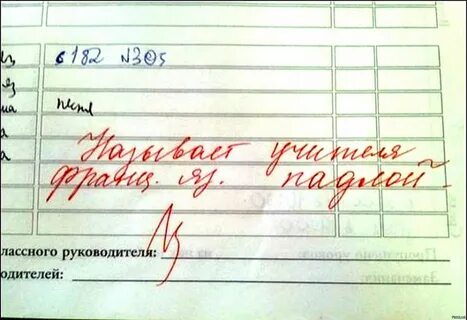 с 182 №305
яз
ма
песня
а
Называет учителя
а
франц. яз. падлой
лассного руководителя:
одителей: